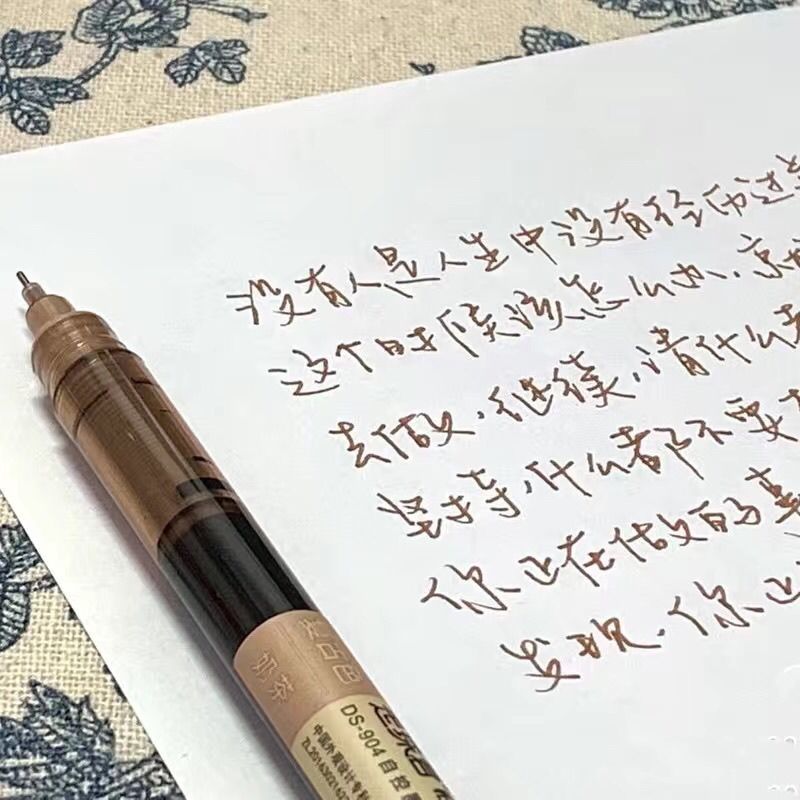 没有人是人生中没有经历过
这个时候该怎么办，
去做，继续，请什么
坚持，什么都不要
你正在做的事
发现，你正
奶茶
DS-904 自控
中国外观设计专利